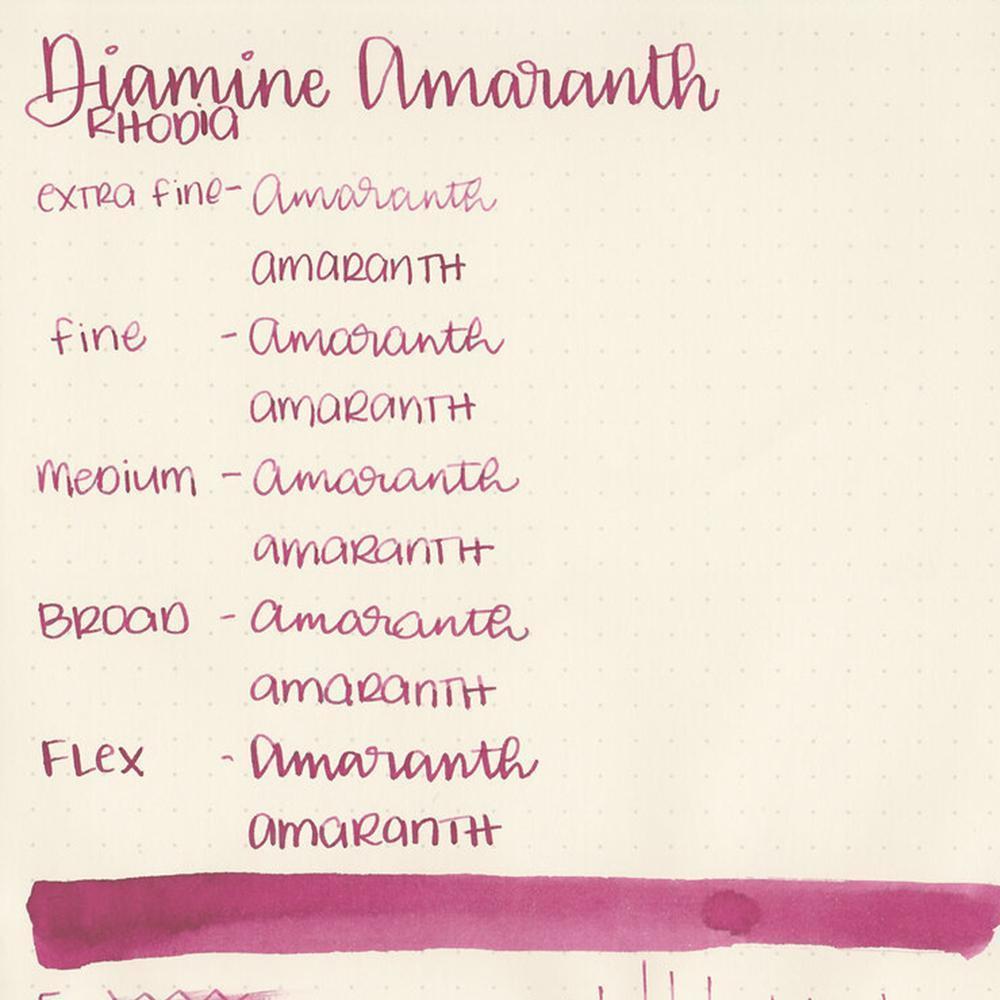 Diamine Amaranth
RHODIA
extra fine - Amaranth
AMARANTH
fine - Amaranth
AMARANTH
Medium - Amaranth
AMARANTH
BROAD - Amaranth
AMARANTH
FLex - Amaranth
AMARANTH